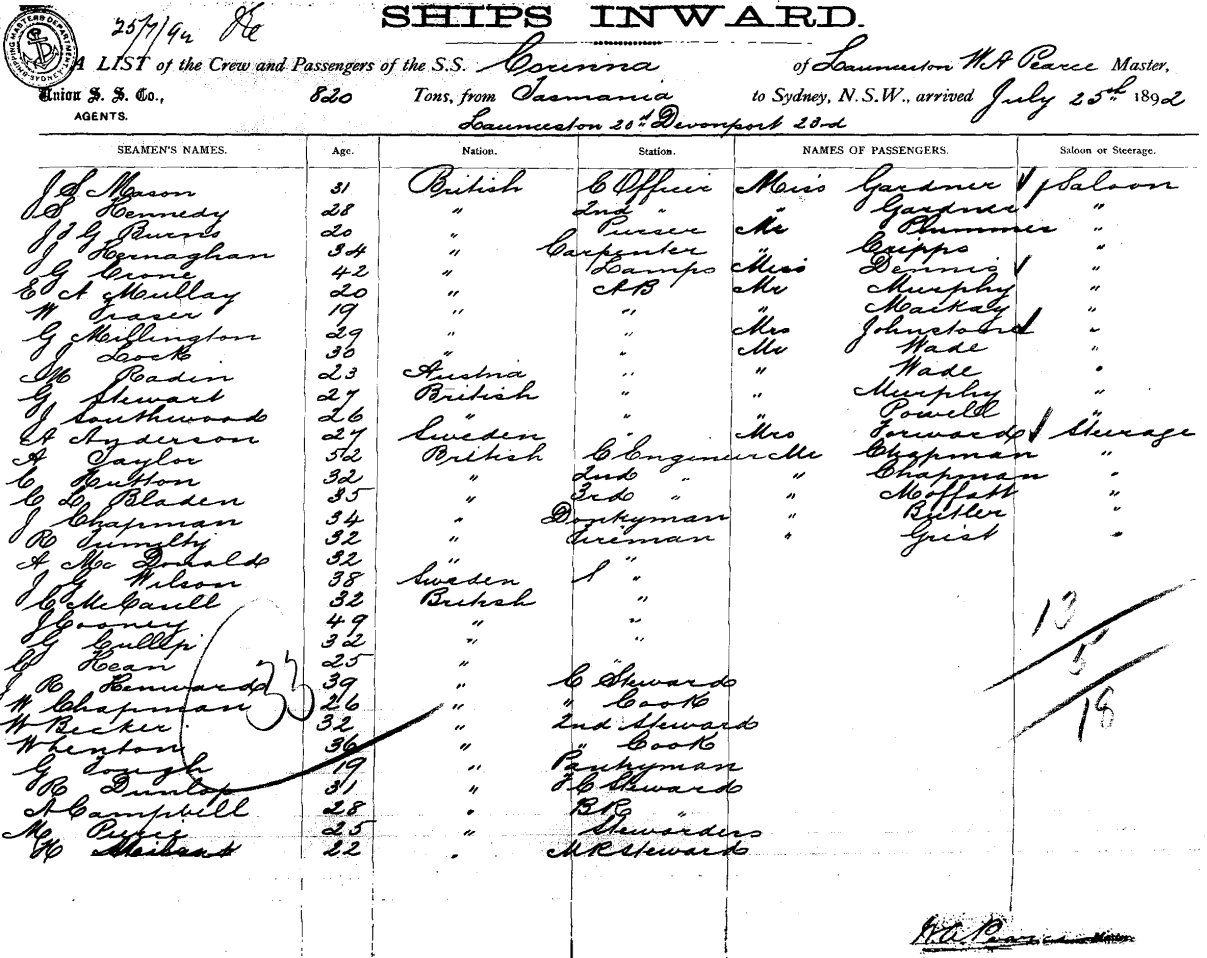 25/7/92
SHIPS INWARD.
SHIPPING MASTERS DEPARTMENT SYDNEY
A LIST of the Crew and Passengers of the S.S. Corinna of Launceston W A Pearce Master,
Union S. S. Co., 820 Tons, from Tasmania to Sydney, N.S.W., arrived July 25th 1892
AGENTS.
Launceston 20th Devonport 23rd
SEAMEN'S NAMES. Age. Nation. Station. NAMES OF PASSENGERS. Saloon or Steerage.
J S Mason 31 British C Officer Miss Gardner Saloon
S Kennedy 28 " 2nd " " Gardner "
J J G Burns 20 " Purser Mr Plummer "
J Kernaghan 34 " Carpenter " Cripps "
G Crone 42 " Lamps Miss Dennis "
E A Mullay 20 " AB Mr Murphy "
W Fraser 19 " " " Mackay "
G Millington 29 " " Mrs Johnstone "
J Lock 30 " " Mr Wade "
M Radin 23 Austria " " Wade "
G Stewart 27 British " " Murphy "
J Southwood 26 " " " Powell "
A Anderson 27 Sweden " Mrs Forward Steerage
A Taylor 52 British C Engineer Mr Chapman "
C Hutton 32 " 2nd " " Chapman "
C L Bladen 35 " 3rd " " Moffatt "
J Chapman 34 " Donkyman " Butler "
R Tumilty 32 " Fireman " Grist "
A Mc Donald 32 " "
J G Wilson 38 Sweden "
C McCaull 32 British "
J Cooney 49 " "
G Cullip 32 " "
C Kean 25 " "
J R Henward 39 " C Steward
W Chapman 26 " " Cook
W Becker 32 " 2nd Steward
Whenton 36 " " Cook
G Tough 19 " Pantryman
R Dunlop 31 " F C Steward
A Campbell 28 " BR "
M Pierce 25 " Stewardess
H 22 " M R Steward
33
13
5
18
W A Pearce